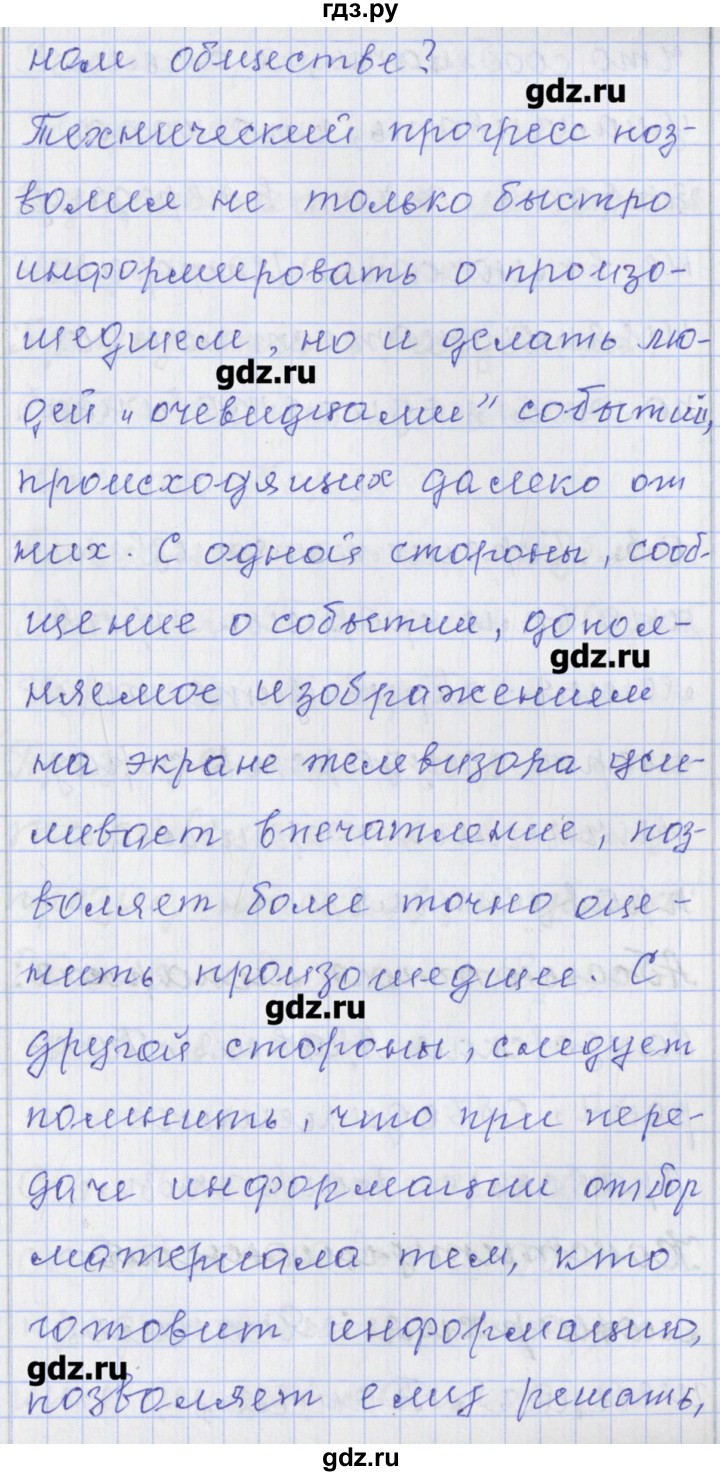 гдз.ру
ном обществе?
gdz.ru
Технический прогресс поз-
волил не только быстро
информировать о произо-
шедшем, но и делать лю-
gdz.ru
дей „очевидцами” событий,
происходящих далеко от
них. С одной стороны, сооб-
щение о событии, допол-
gdz.ru
няемое изображением
на экране телевизора уси-
ливает впечатление, поз-
воляет более точно оце-
нить произошедшее. С
gdz.ru
другой стороны, следует
помнить, что при пере-
даче информации отбор
материала тем, кто
готовит информацию,
gdz.ru
позволяет ему решать,
gdz.ru